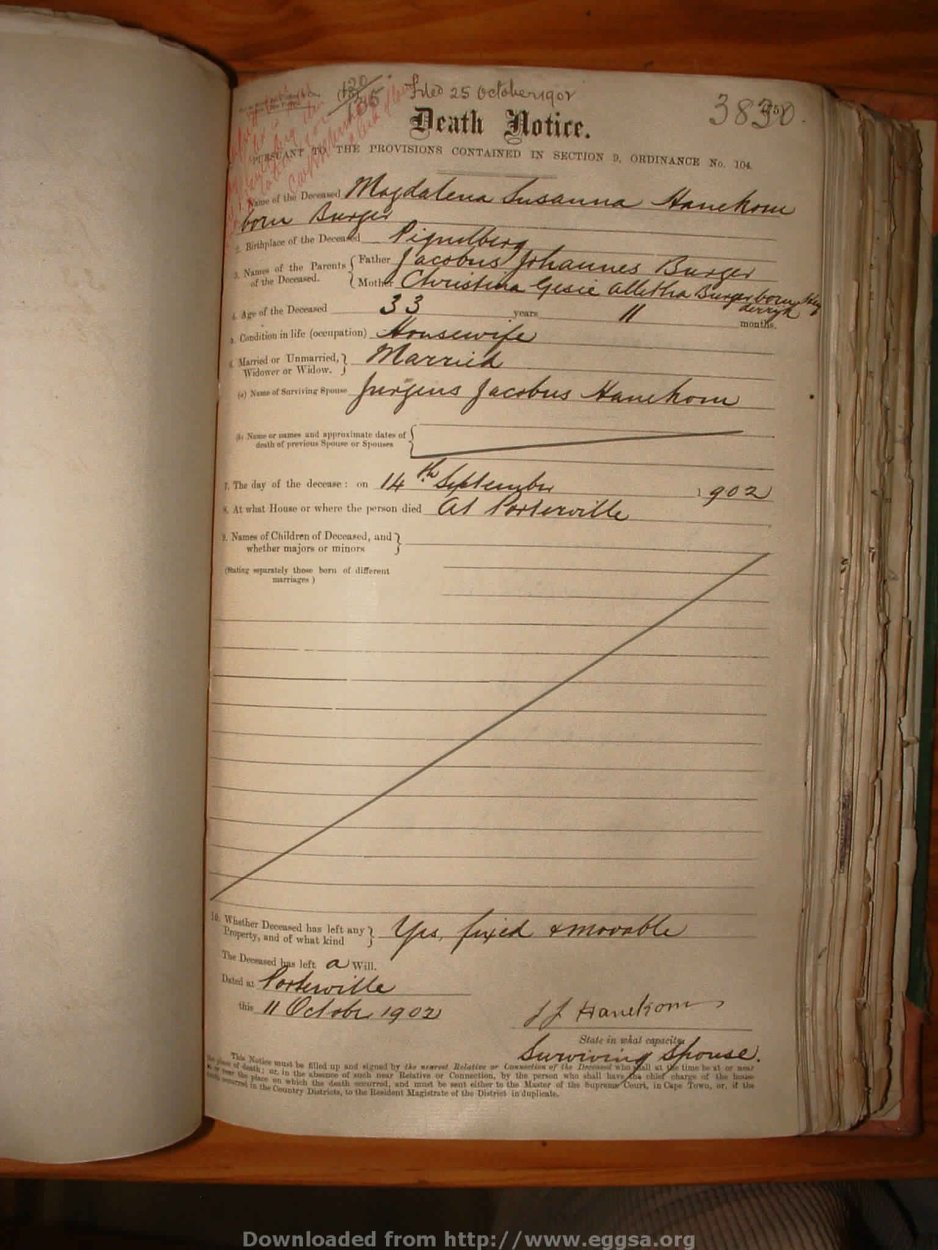 Filed 25 October 1902
3830.
Death Notice.
PURSUANT TO THE PROVISIONS CONTAINED IN SECTION 9, ORDINANCE No. 104.
1. Name of the Deceased Magdalena Susanna Hanekom
born Burger
2. Birthplace of the Deceased Piquetberg
3. Names of the Parents of the Deceased. Father Jacobus Johannes Burger
Mother Christina Gesie Alletha Burger born
4. Age of the Deceased 33 years 11 months.
5. Condition in life (occupation) Housewife
6. Married or Unmarried, Widower or Widow. Married
(a) Name of Surviving Spouse Jurgens Jacobus Hanekom
(b) Name or names and approximate dates of
death of previous Spouse or Spouses
7. The day of the decease: on 14th September 1902
8. At what House or where the person died At Porterville
9. Names of Children of Deceased, and
whether majors or minors
(Stating separately those born of different
marriages)
10. Whether Deceased has left any
Property, and of what kind Yes, fixed & movable
The Deceased has left a Will.
Dated at Porterville
this 11 October 1902
J J Hanekom
State in what capacity
Surviving Spouse.
This Notice must be filled up and signed by the nearest Relative or Connection of the Deceased who shall at the time be at or near
the place of death; or, in the absence of such near Relative or Connection, by the person who shall have the chief charge of the house
in or near the place on which the death occurred, and must be sent either to the Master of the Supreme Court, in Cape Town, or, if the
death occurred in the Country Districts, to the Resident Magistrate of the District in duplicate.
Downloaded from http://www.eggsa.org